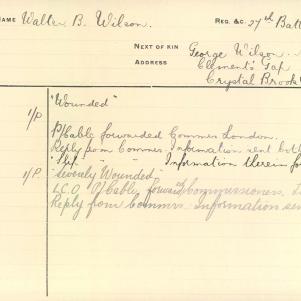 NAME Walter B. Wilson. REG. &C. 27th Batt
NEXT OF KIN George Wilson
ADDRESS Clement's Gap
Crystal Brook
1/P "Wounded"
P/Cable forwarded Commrs London.
Reply from Commrs. Information sent
Information therein
1/P. "Severely Wounded"
L.C.O. P/Cable forward Commissioners
Reply from Commrs. Information